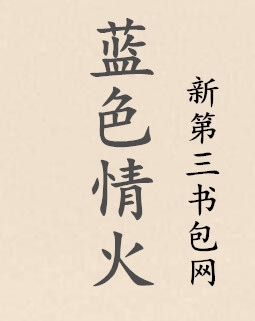 蓝色情火
新第三书包网